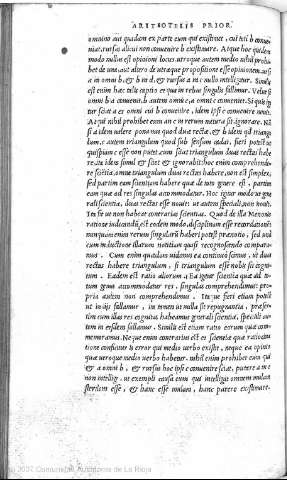 ARISTOTELIS PRIOR.
omnino aut quadam ex parte cum qui existimet, cui toti b conve
niat, rursus alicui non convenire b existimare. Atque hoc quidem
modo nullus est opinioni locus utroque autem medio nihil prohi
bet de una aut altero de utraque propositione esse opinionem.
a in omni b, & b in d, & rursus a in nullo intelligitur. Similis
est enim haec talis captio et qua in rebus singulis fallimur. Velut si
omni b a convenit. b autem omni c, a omni c conveniet. Si quis igi
tur sciat a ei omni cui b convenire, idem ipsi c convenire novit.
At qui nihil prohibet eum an c in rerum natura sit ignorare.
si a idem valere ponamus quod duae rectae, & b idem qd triangu
lum: c autem triangulum quod sub sensum cadat. fieri potest ut
quispiam c esse non putet cum sciat triangulum duas rectas habe
re. ita idem simul & sciet & ignorabit: hoc enim comprehende
re scientia, omne triangulum duas rectas habere, non est simplex,
sed partim eam scientiam habere quae de toto genere est, partim
eam quae ad res singulas accommodatur. Hoc igitur modo ut gene
rali scientia, duas rectas esse novit: ut autem speciali, non novit.
Ita fit ut non habeat contrarias scientias. Quod de illa Menonis
ratione iudicandum est eodem modo, disciplinam esse recordationem
nunquam enim rerum singularum haberi potest praenotio, sed unà
cum inductione illarum notitiam quasi recognoscendo compara
mus. Cum enim quaedam videmus ea continuò scimus, ut duas
rectas habere triangulum, si triangulum esse nobis sit cogni
tum. Eadem est ratio aliorum. Ea igitur scientia quae ad to
tum genus accommodatur res, singulas comprehendimus: pro
pria autem non comprehendimus. Itaque fieri etiam potest
ut in iis fallamur, in tenens ut nulla sit repugnantia, praeser
tim cum illas res cognitas habeamus generali scientia, speciali au
tem in eisdem fallamur. Similis est etiam ratio eorum quae com
memoravimus. Neque enim contrarius est ei scientiae quae ratiocina
tione conficitur is error qui medio verbo existit, neque ea opinio
quae utroque medio verbo habetur. nihil enim prohibet eum qui
& a omni b, & rursus hoc ipsi c convenire sciat, putare a in c
non intelligi. ut exempli causa cum qui intelligit omnem mulam
sterilem esse, & hanc esse mulam, hanc putare existimare.
2007 Comunidad Autónoma de La Rioja